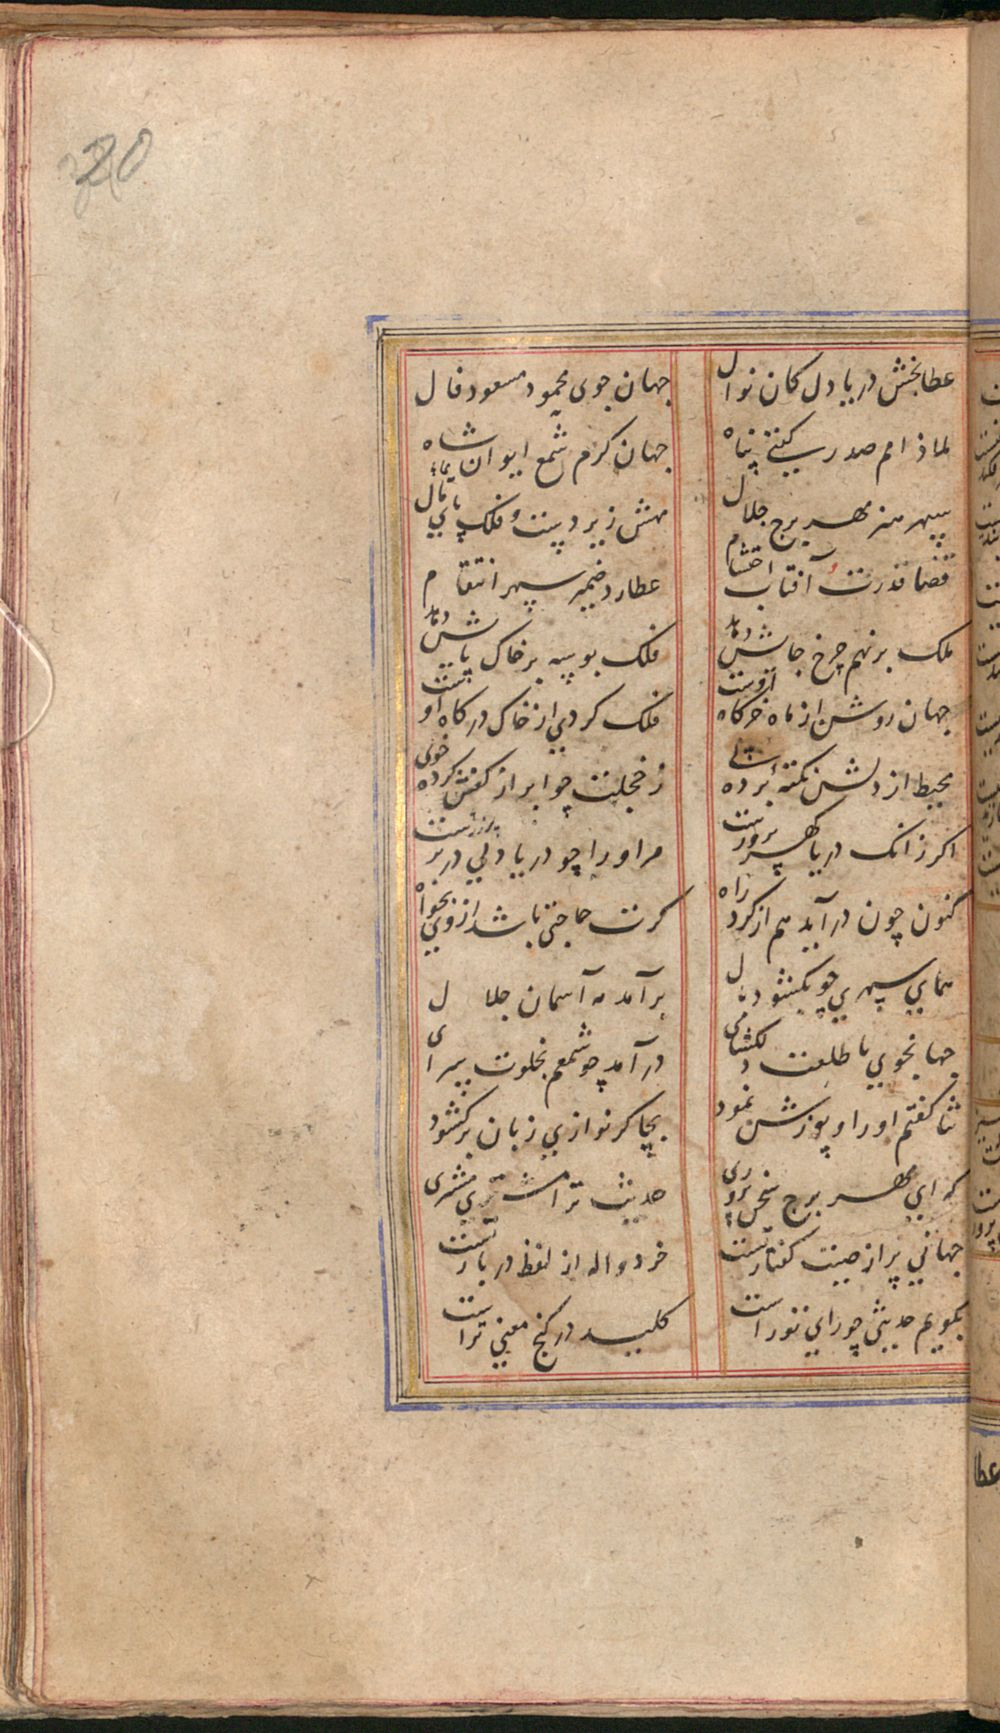 20
عطابخش دریا دل کان نوال جهان جوی محمود مسعود فال
ملاذ امم صدر گیتی پناه جهان کرم شمع ایوان شاه
سپهر هنر مهر برج جلال مهش زیر دست و فلک پایمال
قضا قدرت آفتاب احتشام عطارد ضمیر سپهر انتقام
ملک بر نهم چرخ جاش دهد فلک بوسه بر خاک پاش دهد
جهان روشن از ماه خرگاه اوست فلک گردی از خاک درگاه اوست
محیط از دلش نکته برده پی ز خجلت چو ابر از کفش کرده خوی
اکر زانک دریا کهر پرورست مر او را چو دریا دلی در برست
کنون چون درآید هم از کرد راه کرت حاجتی باشد از وی بخواه
همای سپهری چو بکشود بال برآمد مه آسمان جلال
جهانجوی با طلعت دلکشای درآمد چو شمعم بخلوت سرای
ثنا کفتم او را و پوزش نمود بچاکر نوازی زبان برکشود
که ای مهر برج سخن پروری حدیث ترا مشتری مشتری
جهانی پر از صیت کفتار تست خرد واله از لفظ دربار تست
بکویم حدیثی چو رای تو راست کلید در کنج معنی تراست
عطا